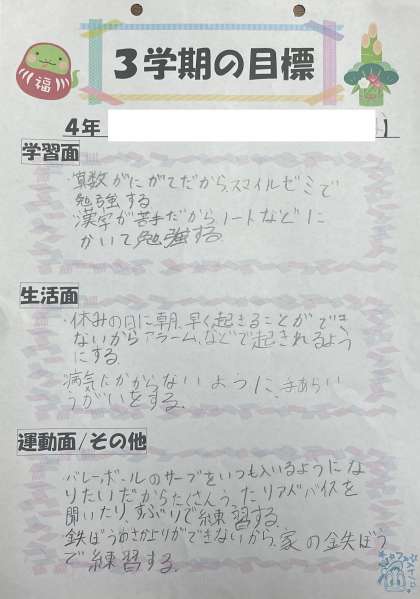 福
3学期の目標
4年
】
学習面
・算数がにがてだから、スマイルゼミで
勉強する
・漢字が苦手だからノートなどに
かいて勉強する
生活面
・休みの日に朝、早く起きることができ
ないからアラーム、などで起きれるよう
にする。
・病気にかからないように、手あらい
うがいをする。
運動面/その他
・バレーボールのサーブをいつも入いるようにな
りたいだからたくさんうったりアドバイスを
聞いたり、すぶりで練習する。
・鉄ぼうわさかよりができないから、家の金失ぼう
で練習する。